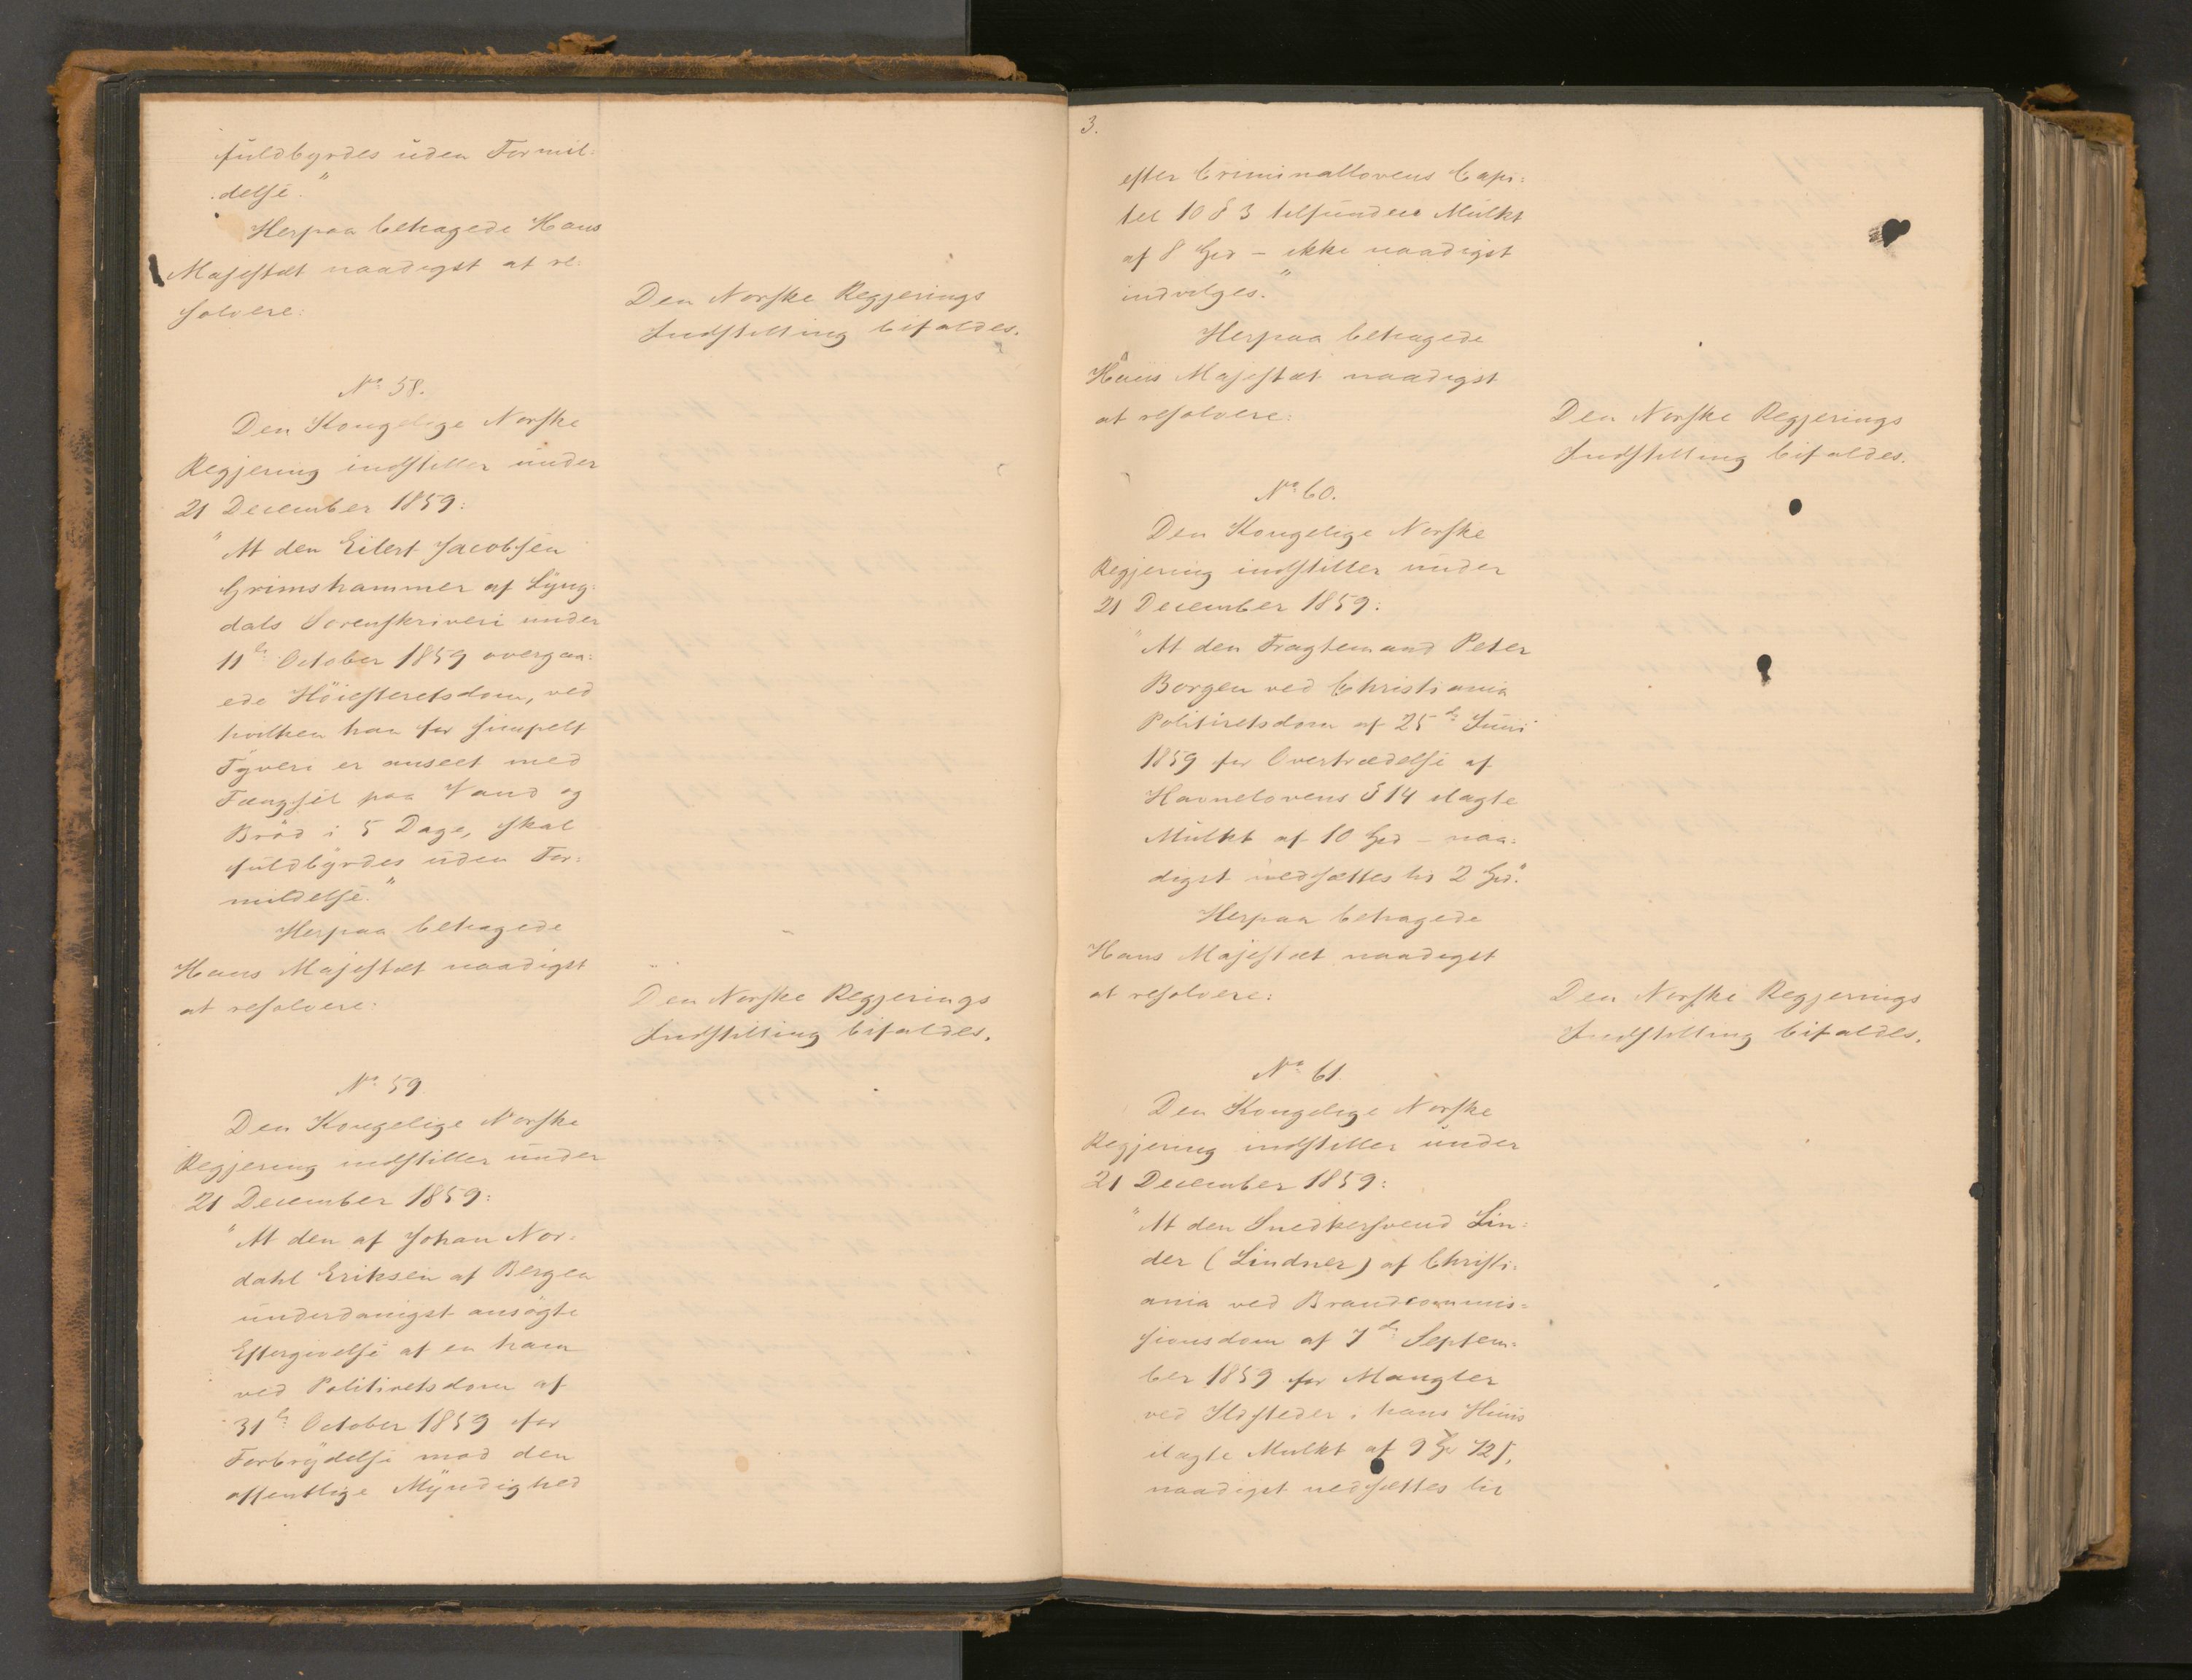 fuldbyrdes uden Formil=
delse."
Herpaa behagede Hans
Majestæt naadigst at re=
solvere:
Den Norske Regjerings
Indstilling bifaldes.
No 58.
Den Kongelige Norske
Regjering indstiller under
21 December 1859:
"At den Eilert Jacobsen
Grimshammer af Lyng=
dals Sorenskriveri under
11te October 1859 overgaa=
ede Höiesteretsdom, ved
hvilken han for simpelt
Tyveri er anseet med
Fængsel paa Vand og
Bröd i 5 Dage, skal
fuldbyrdes uden For=
mildelse."
Herpaa behagede
Hans Majestæt naadigst
at resolvere:
Den Norske Regjerings
Indstilling bifaldes.
No 59.
Den Kongelige Norske
Regjering indstiller under
21 December 1859:
"At den af Johan Nor=
dahl Eriksen af Bergen
underdanigst ansögte
Eftergivelse af en ham
ved Politiretsdom af
31te October 1859 for
Forbrydelse mod den
offentlige Myndighed
3.
efter Criminallovens Capi=
tel 10 § 3 tilfunden Mulkt
af 8 Spd – ikke naadigst
indvilges."
Herpaa behagede
Hans Majestæt naadigst
at resolvere:
Den Norske Regjerings
Indstilling bifaldes.
No 60.
Den Kongelige Norske
Regjering indstiller under
21 December 1859:
"At den Fragtemand Peter
Borgen ved Christiania
Politiretsdom af 25de Juni
1859 for Overtrædelse af
Havnelovens § 14 ilagte
Mulkt af 10 Spd – naa=
digst nedsættes til 2 Spd."
Herpaa behagede
Hans Majestæt naadigst
at resolvere:
Den Norske Regjerings
Indstilling bifaldes.
No 61.
Den Kongelige Norske
Regjering indstiller under
21 December 1859:
"At den Snedkersvend Lin=
der (Lindner) af Christi=
ania ved Brandcommis=
sionsdom af 7de Septem=
ber 1859 for Mangler
ved Ildsteder i hans Huus
ilagte Mulkt af 9 Spd 72 s,
naadigst nedsættes til